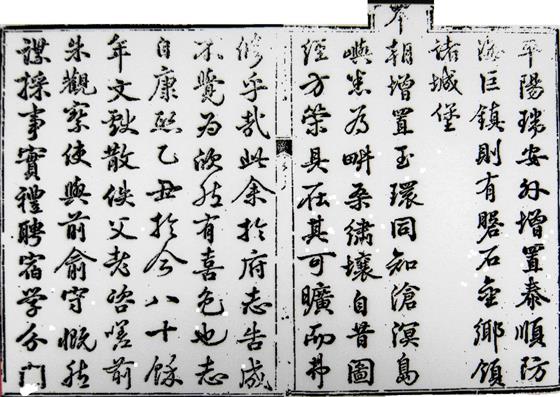 平陽瑞安外增置泰順防
海巨鎮則有磐石金鄉領
諸城堡
本朝增置玉環同知滄溟島
嶼悉為畊桑繡壤自昔圖
經方策具在其可曠而弗
修乎哉此余於府志告成
不覺為欣然有喜色也志
自康熙乙丑於今八十餘
年文獻散佚父老咨嗟前
朱觀察使與前俞守慨然
謀採事實禮聘宿學分門